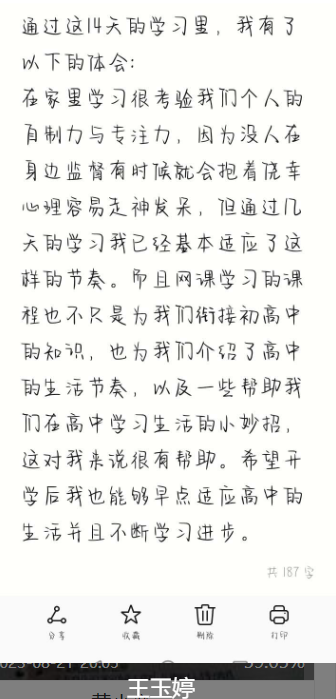 通过这14天的学习里，我有了
以下的体会：
在家里学习很考验我们个人的
自制力与专注力，因为没人在
身边监督有时候就会抱着侥幸
心理容易走神发呆，但通过几
天的学习我已经基本适应了这
样的节奏。而且网课学习的课
程也不只是为我们衔接初高中
的知识，也为我们介绍了高中
的生活节奏，以及一些帮助我
们在高中学习生活的小妙招，
这对我来说很有帮助。希望开
学后我也能够早点适应高中的
生活并且不断学习进步。
共 187 字
分享 收藏 删除 打印
王玉婷